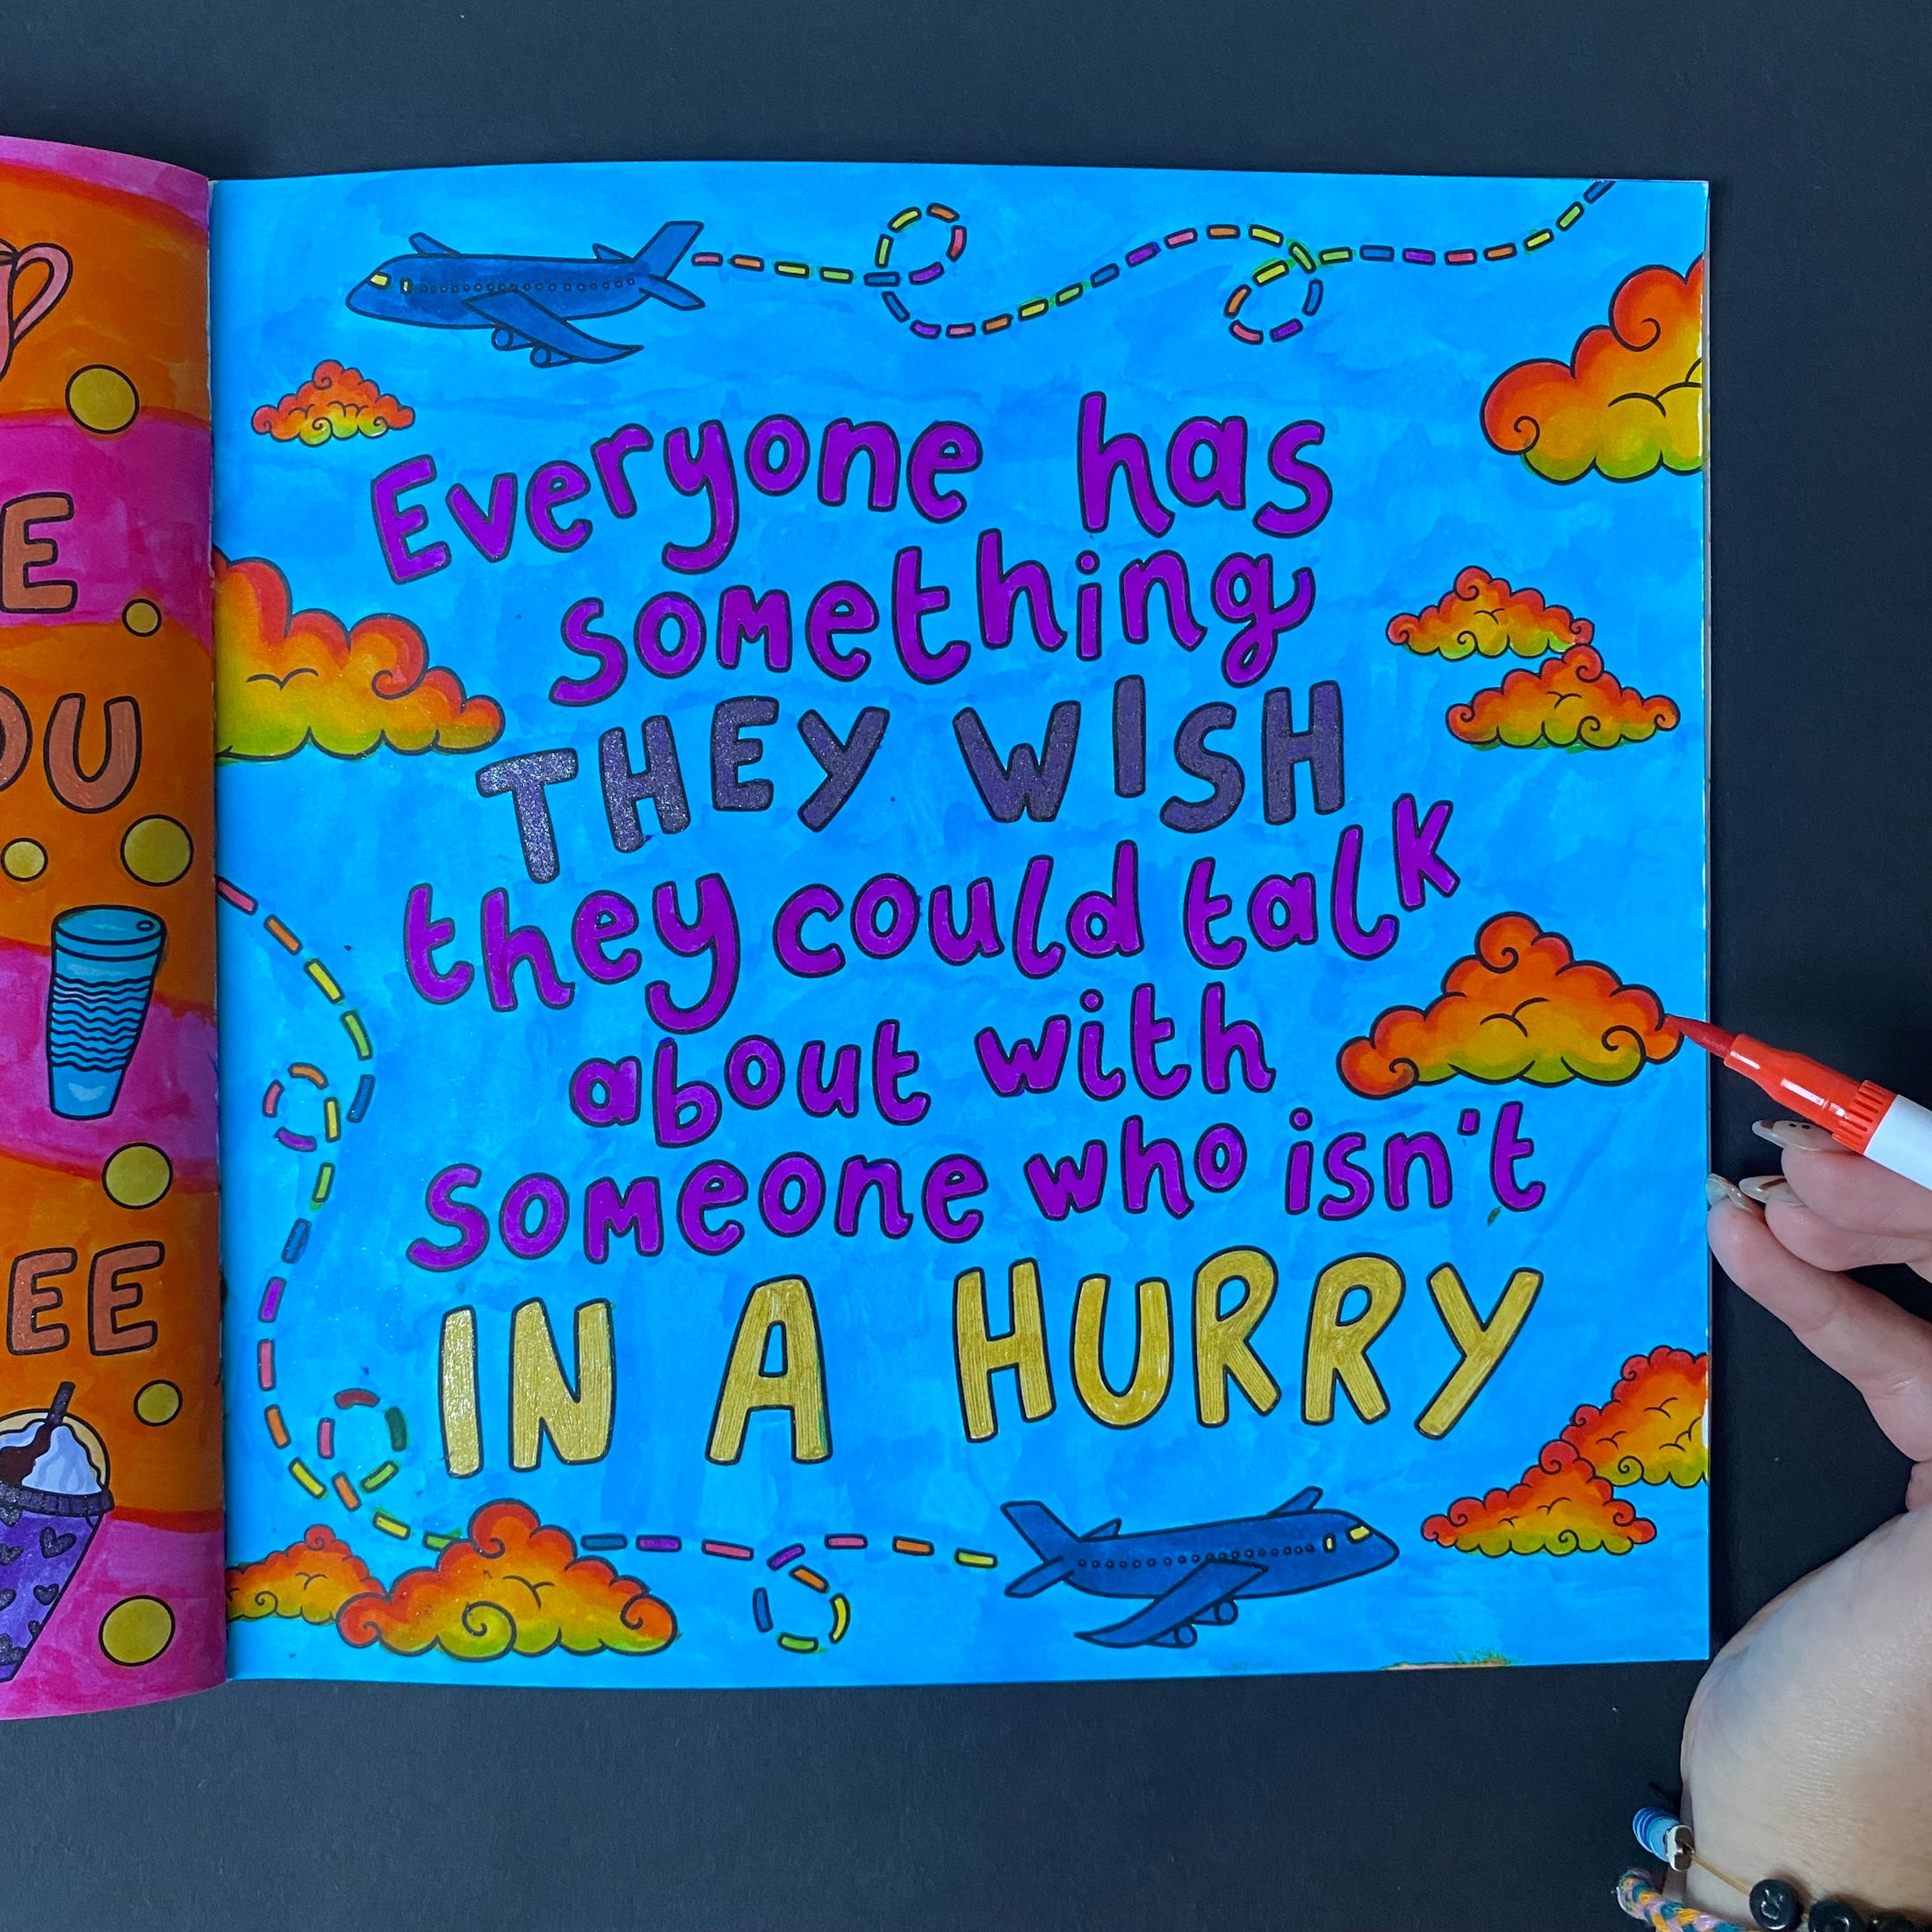 Everyone has
something
THEY WISH
they could talk
about with
someone who isn't
IN A HURRY
E
OU
EE